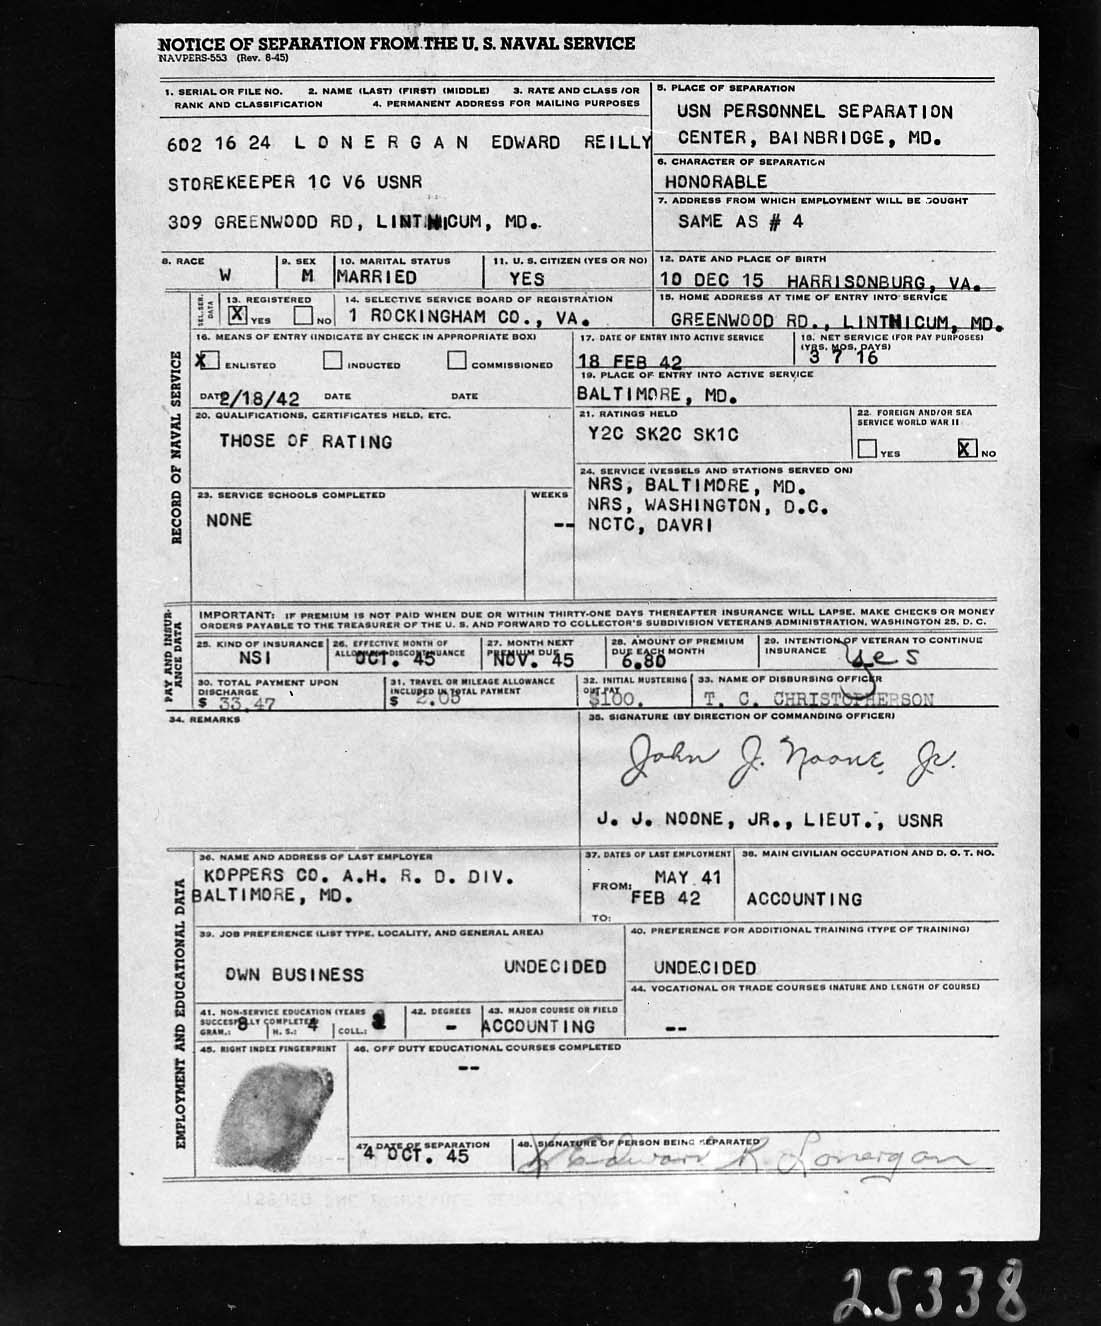 NOTICE OF SEPARATION FROM THE U. S. NAVAL SERVICE
NAVPERS-553 (Rev. 8-45)
1. SERIAL OR FILE NO. 2. NAME (LAST) (FIRST) (MIDDLE) 3. RATE AND CLASS /OR
RANK AND CLASSIFICATION 4. PERMANENT ADDRESS FOR MAILING PURPOSES
602 16 24 LONERGAN EDWARD REILLY
STOREKEEPER 1C V6 USNR
309 GREENWOOD RD, LINTHICUM, MD.
5. PLACE OF SEPARATION
USN PERSONNEL SEPARATION
CENTER, BAINBRIDGE, MD.
6. CHARACTER OF SEPARATION
HONORABLE
7. ADDRESS FROM WHICH EMPLOYMENT WILL BE SOUGHT
SAME AS # 4
8. RACE
W
9. SEX
M
10. MARITAL STATUS
MARRIED
11. U. S. CITIZEN (YES OR NO)
YES
12. DATE AND PLACE OF BIRTH
10 DEC 15 HARRISONBURG, VA.
SEL. SER. DATA
13. REGISTERED
X YES NO
14. SELECTIVE SERVICE BOARD OF REGISTRATION
1 ROCKINGHAM CO., VA.
15. HOME ADDRESS AT TIME OF ENTRY INTO SERVICE
GREENWOOD RD., LINTHICUM, MD.
RECORD OF NAVAL SERVICE
16. MEANS OF ENTRY (INDICATE BY CHECK IN APPROPRIATE BOX)
X ENLISTED INDUCTED COMMISSIONED
DATE 2/18/42 DATE DATE
17. DATE OF ENTRY INTO ACTIVE SERVICE
18 FEB 42
18. NET SERVICE (FOR PAY PURPOSES)
(YRS, MOS, DAYS)
3 7 16
19. PLACE OF ENTRY INTO ACTIVE SERVICE
BALTIMORE, MD.
20. QUALIFICATIONS, CERTIFICATES HELD, ETC.
THOSE OF RATING
21. RATINGS HELD
Y2C SK2C SK1C
22. FOREIGN AND/OR SEA
SERVICE WORLD WAR II
YES X NO
23. SERVICE SCHOOLS COMPLETED WEEKS
NONE --
24. SERVICE (VESSELS AND STATIONS SERVED ON)
NRS, BALTIMORE, MD.
NRS, WASHINGTON, D.C.
NCTC, DAVRI
PAY AND INSURANCE DATA
IMPORTANT: IF PREMIUM IS NOT PAID WHEN DUE OR WITHIN THIRTY-ONE DAYS THEREAFTER INSURANCE WILL LAPSE. MAKE CHECKS OR MONEY
ORDERS PAYABLE TO THE TREASURER OF THE U. S. AND FORWARD TO COLLECTOR'S SUBDIVISION VETERANS ADMINISTRATION, WASHINGTON 25, D. C.
25. KIND OF INSURANCE
NSI
26. EFFECTIVE MONTH OF
ALLOTMENT DISCONTINUANCE
OCT. 45
27. MONTH NEXT
PREMIUM DUE
NOV. 45
28. AMOUNT OF PREMIUM
DUE EACH MONTH
6.80
29. INTENTION OF VETERAN TO CONTINUE
INSURANCE
Yes
30. TOTAL PAYMENT UPON
DISCHARGE
$ 33.47
31. TRAVEL OR MILEAGE ALLOWANCE
INCLUDED IN TOTAL PAYMENT
$ 2.05
32. INITIAL MUSTERING
OUT PAY
$100.
33. NAME OF DISBURSING OFFICER
T. C. CHRISTOPHERSON
34. REMARKS
35. SIGNATURE (BY DIRECTION OF COMMANDING OFFICER)
John J. Noone, Jr.
J. J. NOONE, JR., LIEUT., USNR
EMPLOYMENT AND EDUCATIONAL DATA
36. NAME AND ADDRESS OF LAST EMPLOYER
KOPPERS CO. A.H. R. D. DIV.
BALTIMORE, MD.
37. DATES OF LAST EMPLOYMENT
FROM: MAY 41
FEB 42
TO:
38. MAIN CIVILIAN OCCUPATION AND D. O. T. NO.
ACCOUNTING
39. JOB PREFERENCE (LIST TYPE, LOCALITY, AND GENERAL AREA)
OWN BUSINESS UNDECIDED
40. PREFERENCE FOR ADDITIONAL TRAINING (TYPE OF TRAINING)
UNDECIDED
41. NON-SERVICE EDUCATION (YEARS
SUCCESSFULLY COMPLETED)
GRAM.: 8 H. S.: 4 COLL.:
42. DEGREES
-
43. MAJOR COURSE OR FIELD
ACCOUNTING
44. VOCATIONAL OR TRADE COURSES (NATURE AND LENGTH OF COURSE)
--
45. RIGHT INDEX FINGERPRINT
46. OFF DUTY EDUCATIONAL COURSES COMPLETED
--
47. DATE OF SEPARATION
4 OCT. 45
48. SIGNATURE OF PERSON BEING SEPARATED
X Edward R. Lonergan
25338